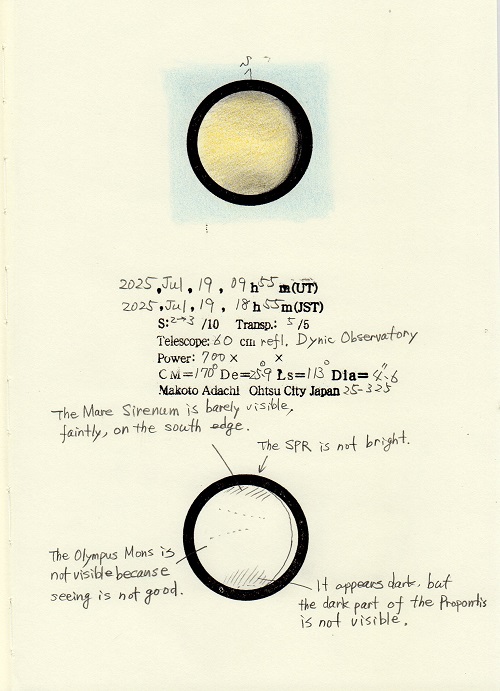 S
2025, Jul, 19, 09h55m(UT)
2025, Jul, 19, 18h55m(JST)
S:2→3/10 Transp.: 5/5
Telescope: 60 cm refl. Dynic Observatory
Power: 700× ×
CM=170° De=25.9° Ls=113° Dia=4.6"
Makoto Adachi Ohtsu City Japan 25-325
The Mare Sirenum is barely visible,
faintly, on the south edge.
The SPR is not bright.
The Olympus Mons is
not visible because
seeing is not good.
It appears dark, but
the dark part of the Propontis
is not visible.